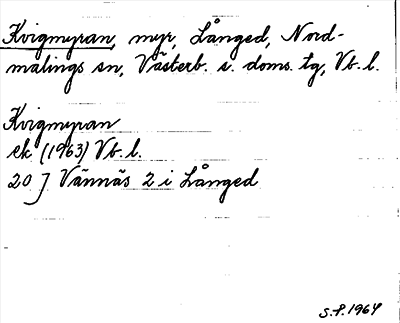 Kvigmyran, myr, Långed, Nord-
malings sn, Västerb. s. doms. tg, Vb. l.
Kvigmyran
ek (1963) Vb. l.
20 J Vännäs 2 i Långed
S.P. 1964